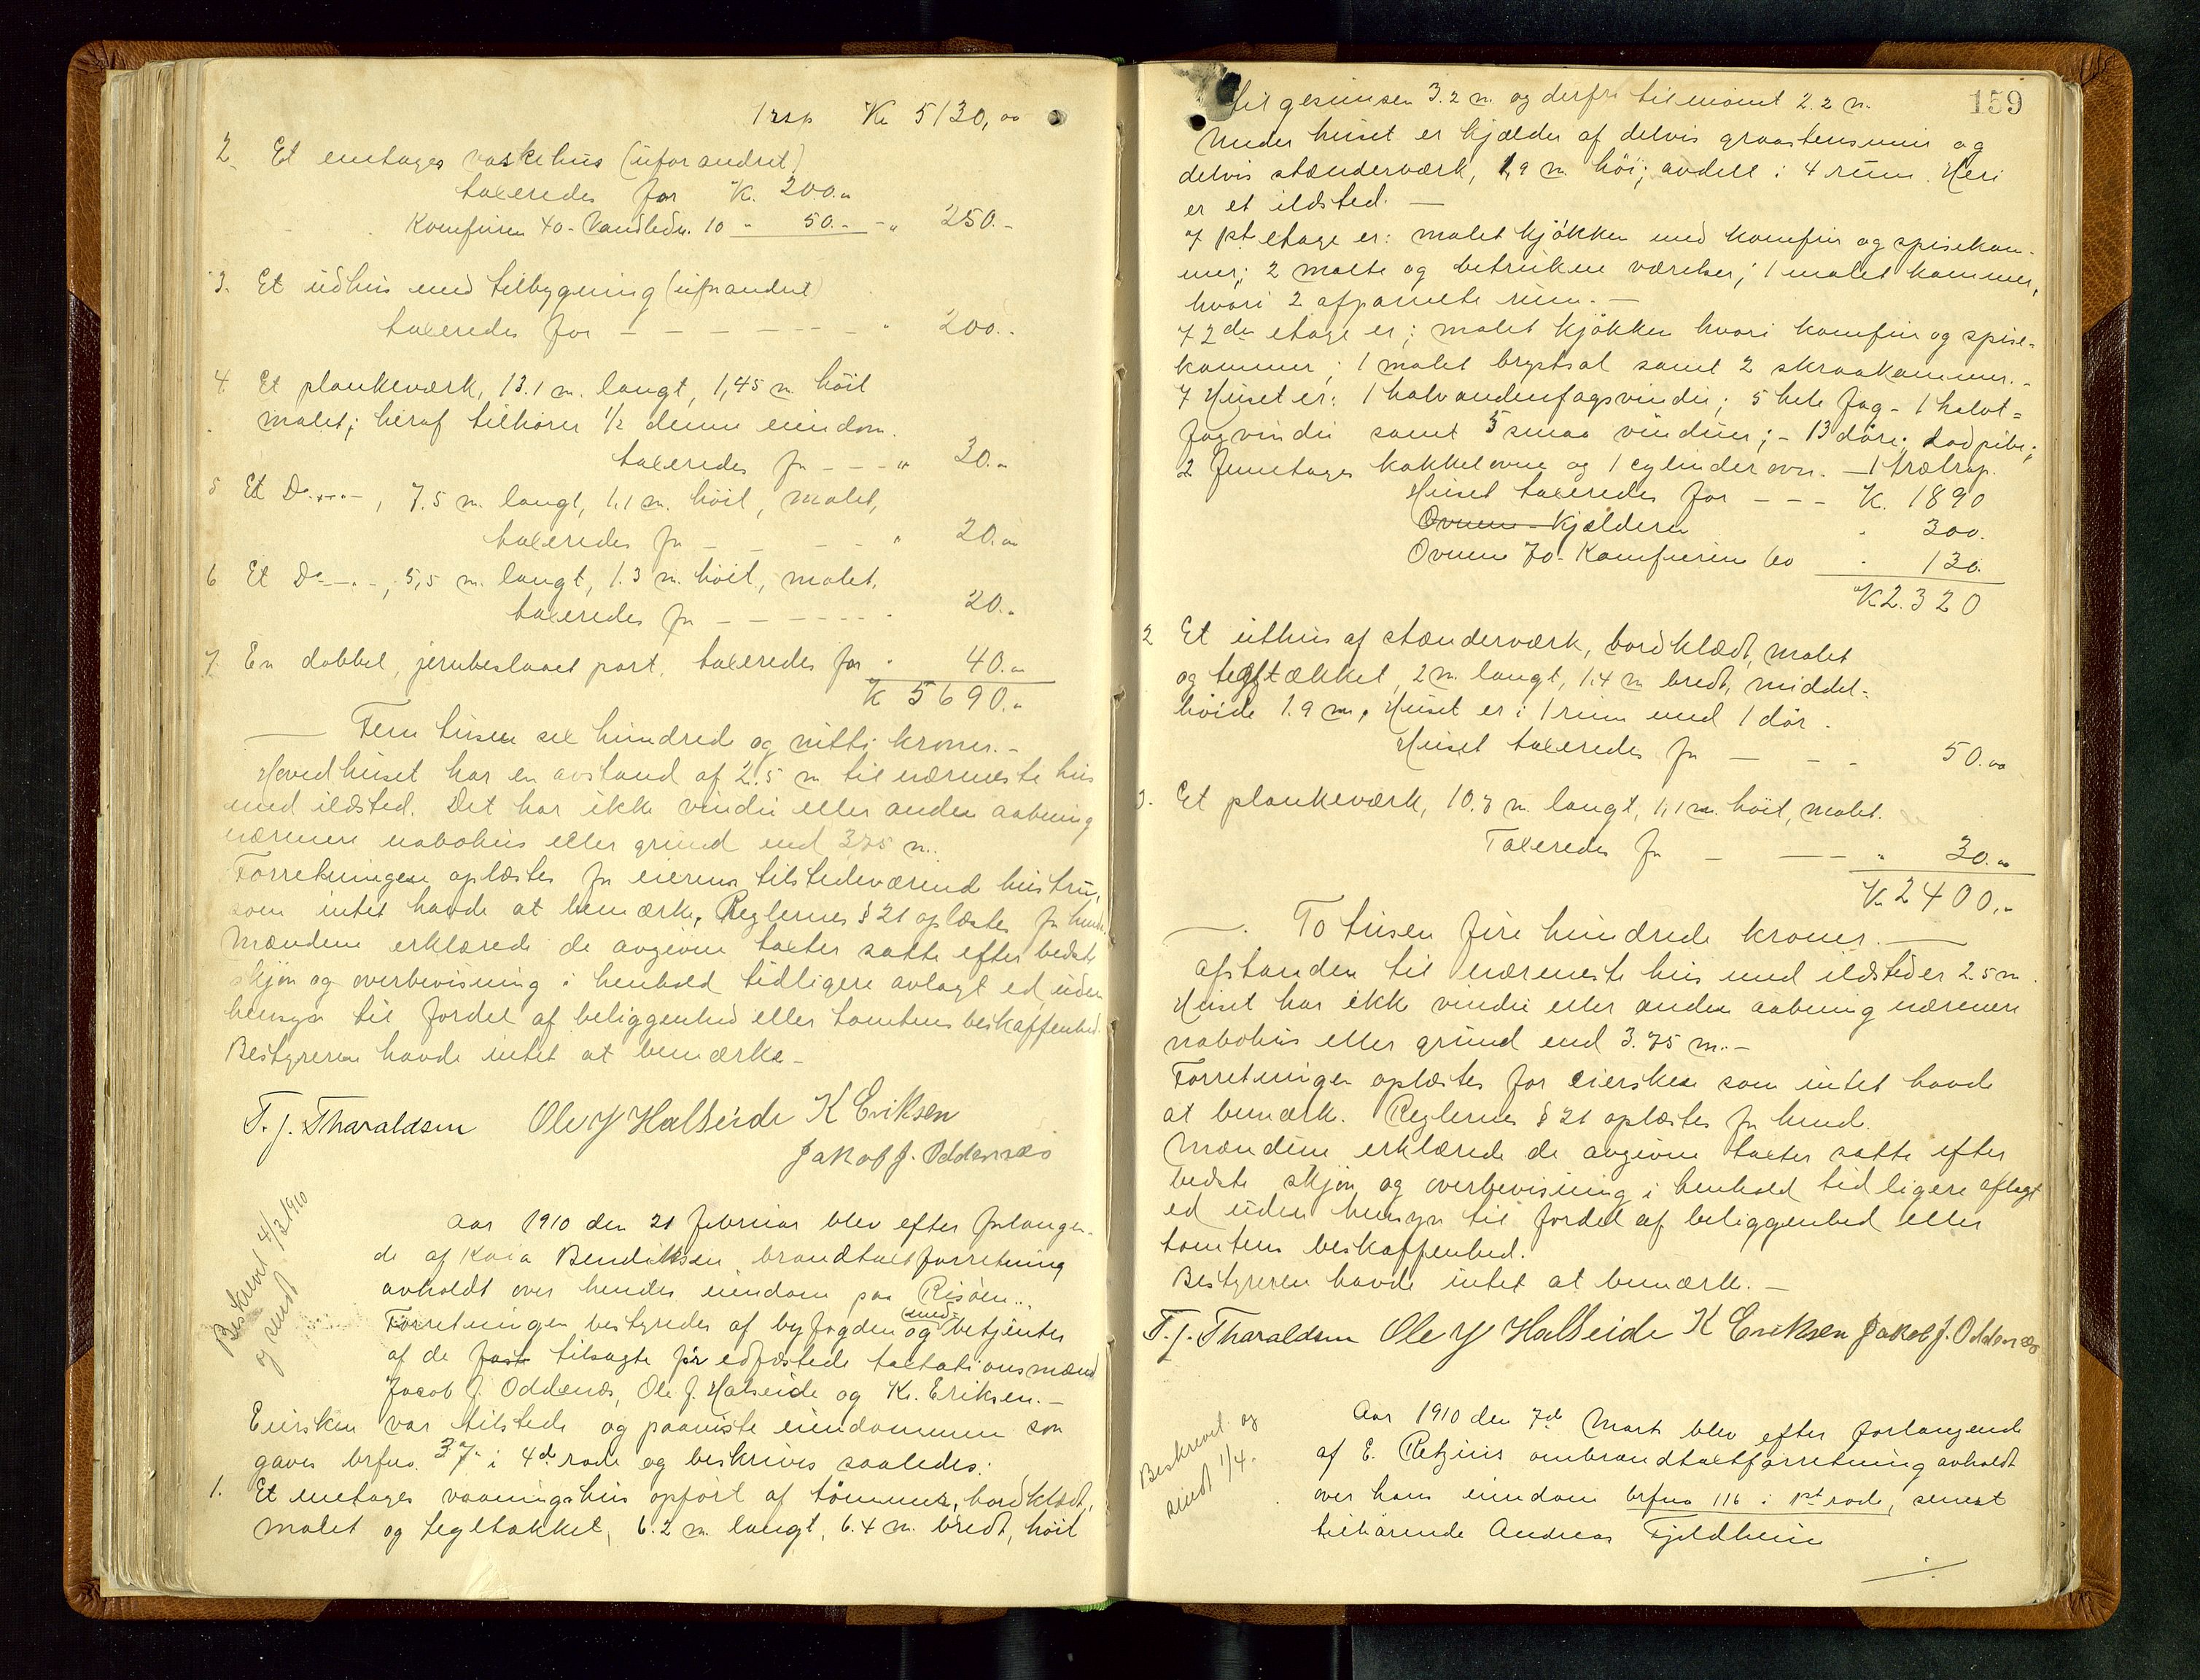 Trsp Kr 5130,00
2. Et enetages vaskehus (uforandret)
taxeredes for K. 200.00
Komfuren 40 - Vandledn. 10 - 50.- - " 250.-
3. Et udhus med tilbygning (uforandret)
taxeredes for - - - - - - - - " 200.-
4. Et plankeværk, 13.1 m. langt, 1,45 m. höit
malet; heraf tilhører 1/2 denne eiendom.
taxeredes fr - - - " 20.-
5 Et Do.-.-, 7.5 m. langt, 1,1 m. höit, malet,
taxeredes fr - - - - " 20.00
6 Et Do-.-, 5,5 m. langt, 1.3 m. höit, malet.
taxeredes fr - - - - - - 20.-
7. En dobbel, jernbeslaaet port. taxeredes for " 40.-
K 5690.-
Fem tusen sex hundrede og nitti kroner.-
Hovedhuset har en avstand af 2.5 m til nærmeste hus
med ildsted. Det har ikke vindu eller anden aabning
nærmere nabohus eller grund end 3.75 m.
Forretningen oplæstes for eierens tilstedeværende hustru,
som intet havde at bemærke, Reglernes § 21 oplæstes for hende.
Mændene erklærede de avgivne taxter satte efter bedste
skjön og overbevisning i henhold tidligere avlagt ed uden
hensyn til fordel af beliggenhed eller tomtens beskaffenhed.
Bestyreren havde intet at bemærke -
T. J. Tharaldsen Ole J Halseide K Eriksen
Jakob J. Oddenæs
Beskrevet 4/3 1910
og sendt
Aar 1910 den 21 februar blev efter forlangen-
de af Kaia Bendiksen brandtaxtforretning
avholdt over hendes eiendom paa Risöen.
Forretningen bestyredes af byfogden og med- betjentes
af de fast tilsagte för edfæstede taxtationsmænd
Jacob J. Oddenæs, Ole J. Halseide og K. Eriksen.-
Eiersken var tilstede og paaviste eiendommen som
gaves brfno. 37 i 4de rode og beskrives saaledes:
1. Et enetages vaaningshus opfört af tömmer, bordklædt,
malet og tegltækket, 6.2 m. langt, 6.4 m. bredt, höit
159
til gesimsen 3.2 m. og derfra til mönet 2.2 m.
Under huset er kjælder af delvis graastensmur og
delvis stænderværk, 1,9 m höi; avdelt i 4 rum. Heri
er et ildsted. -
I 1st etage er: malet kjökken med komfur og spisekam-
mer; 2 malte og betrukne værelser; 1 malet kammer,
hvori 2 afpanelte rum. -
I 2den etage er; malet kjökken hvori komfur og spise-
kammer; 1 malet brystsal samt 2 skraakammer. -
I Huset er: 1 halvandenfagsvindu; 5 hele fag - 1 halvt-
fagvindu samt 5 smaa vinduer; - 13 döre; Lodpibe;
2 femetages kakkelovne og 1 cylinderovn. - 1 trætrap.
Huset taxeredes for - - - K. 1890
Ovnene - Kjælderen " 300.
Ovnene 70 - Komfurene 60 " 130.
K 2.320
2 Et uthus af stænderværk, bordklædt, malet
og tegltækket, 2 m. langt, 1.4 m bredt, middel-
höide 1.9 m. Huset er i 1 rum med 1 dör.
Huset taxeredes fr - - - 50.00
3. Et plankeværk, 10.7 m. langt, 1,1 m. höit, malet.
Taxeredes fr - - - " 30.00
K 2400.-
To tusen fire hundrede kroner. -
Afstanden til nærmeste hus med ildsted er 2.5 m.
Huset har ikke vindu eller anden aabning nærmere
nabohus eller grund end 3.75 m. -
Forretningen oplæstes for eiersken som intet havde
at bemærke. Reglernes § 21 oplæstes fr hende.
Mændene erklærede de avgivne taxter satte efter
bedste skjön og overbevisning i henhold tidligere aflagt
ed uden hensyn til fordel af beliggenhed eller
tomtens beskaffenhed.
Bestyreren havde intet at bemærke. -
T. J. Tharaldsen Ole J Halseide K Eriksen Jakob J. Oddenæs
Beskrevet og
sendt 1/4.
Aar 1910 den 7de Marts blev efter forlangende
af E. Retzius ombrandtaxtforretning avholdt
over hans eiendom brfno 116 i 1st rode, senest
tilhörende Andreas Fjeldheim